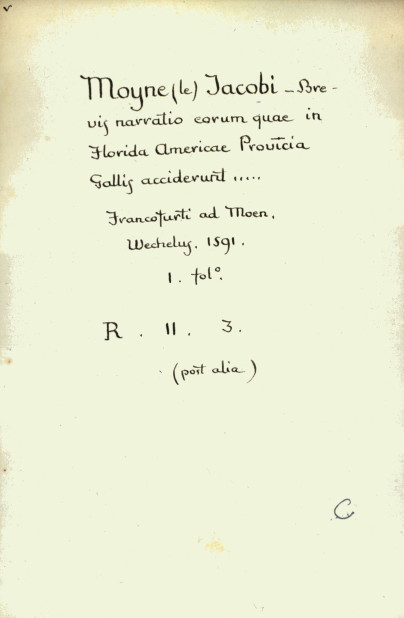 v
Moyne (le) Jacobi - Bre-
vis narratio eorum quae in
Florida Americae Provĩcia
Gallis acciderunt .....
Francofurti ad Moen.
Wechelus. 1591.
1. folº.
R . II . 3.
(post alia)
C